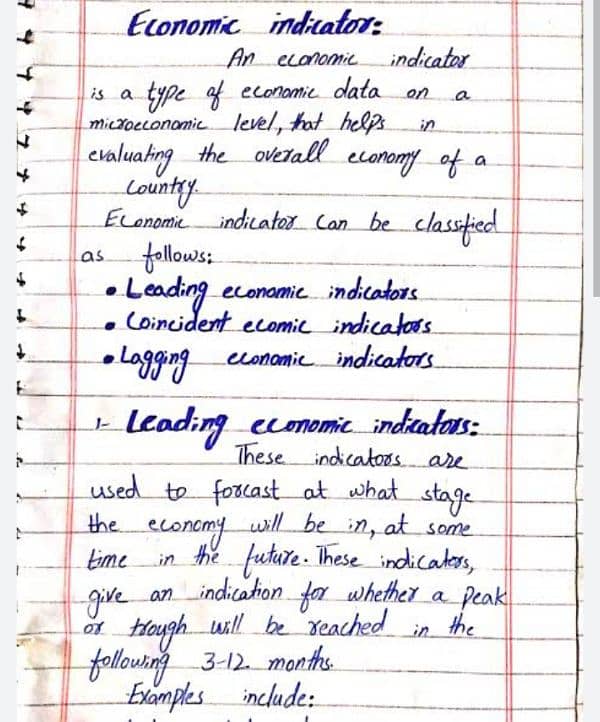 Economic indicator:
An economic indicator
is a type of economic data on a
microeconomic level, that helps in
evaluating the overall economy of a
Country.
Economic indicator Can be classified
as follows:
• Leading economic indicators
• Coincident ecomic indicators
• Lagging economic indicators
1- Leading economic indicators:
These indicators are
used to forcast at what stage
the economy will be in, at some
time in the future. These indicators,
give an indication for whether a Peak
or trough will be reached in the
following 3-12 months.
Examples include: